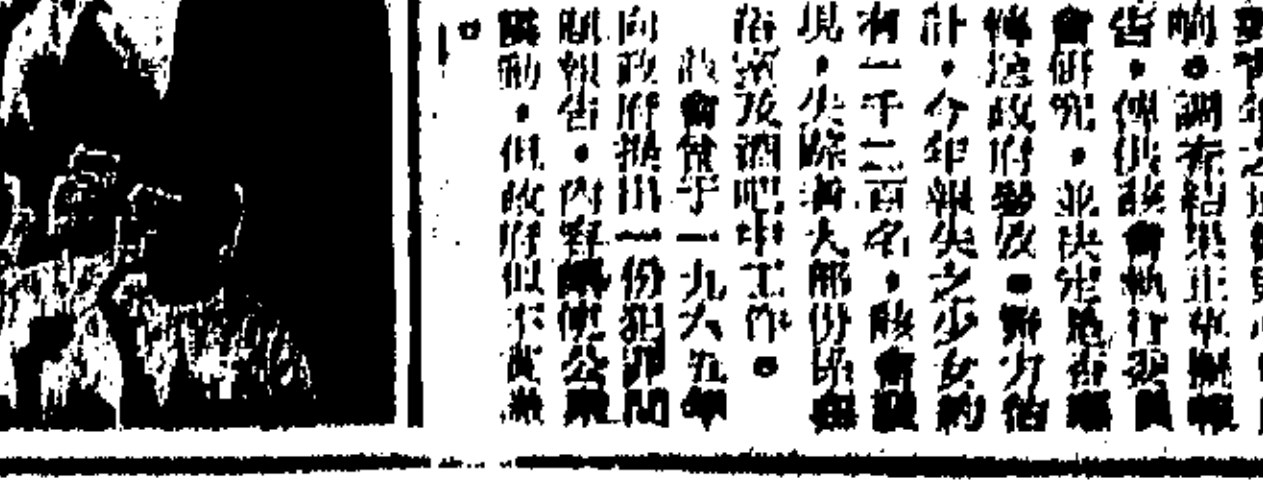 調查結果正在報
告，俾供該會執行委員
會研究，並決定應否
轉達政府發表。警方估
計，今年報失之少女約
有一千二百名，該會發
現，失踪者大部份均在
浴室及酒吧中工作。
該會曾于一九六五年
向政府提出一份犯罪問
題報告，內容使公眾
動，但政府似不